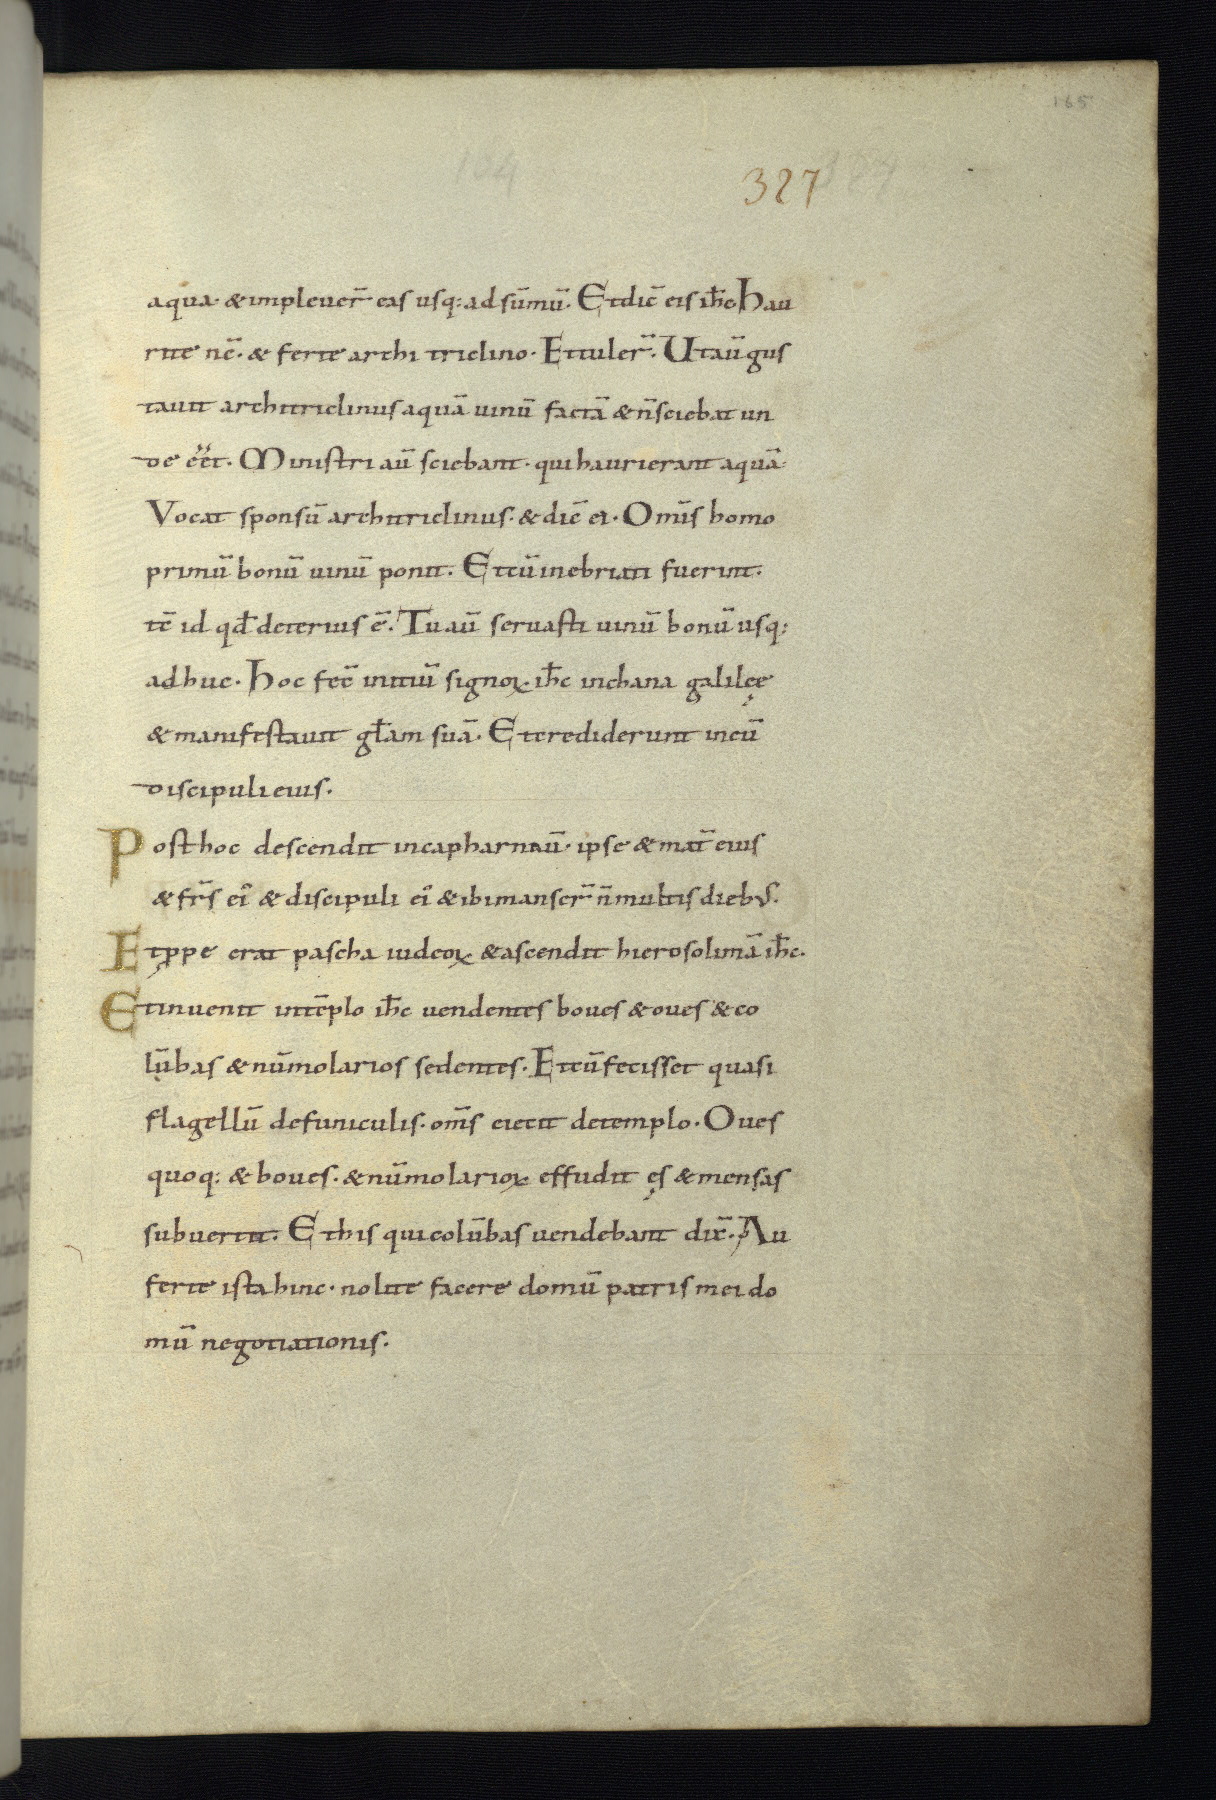 165
327
aqua· & impleuer̄ eas usq; ad sūmū· Et dic̄ eis ih̄c Hau
rite nc̄· & ferte archi triclino· Et tuler̄· Ut aū gus
tauit architriclinus aquā uinū factā & n̄ sciebat un
de eēt· Ministri aū sciebant· qui haurierant aquā·
Vocat sponsū architriclinus· & dic̄ ei· Omīs homo
primū bonū uinū ponit· Et cū inebriati fuerint·
tc̄ id qd̄ deterius ē· Tu aū seruasti uinū bonū usq;
adhuc· Hoc fec̄ initiū signoꝝ ih̄c in chana galileę
& manifestauit gl̄am suā· Et crediderunt in eū
discipuli eius·
Post hoc descendit in capharnaū· ipse & mat̄ eius
& fr̄s ei᾽ & discipuli ei᾽ & ibi manser̄ n̄ multis dieb;·
Et ꝓpe erat pascha iudeoꝝ & ascendit hierosolimā ih̄c·
Et inuenit in tēplo ih̄c uendentes boues & oues & co
lūbas & nūmolarios sedentes· Et cū fecisset quasi
flagellū de funiculis· om̄s eiecit de templo· Oues
quoq; & boues· & nūmolarioꝝ effudit ęs & mensas
subuertit· Et his qui colūbas uendebant dix̄· Au
ferte ista hinc· nolite facere domū patris mei do
mū negotiationis·